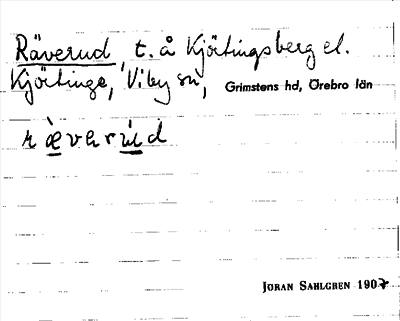 Räverud, t. å Kjörtingsberg el.
Kjörtinge, Viby sn, Grimstens hd, Örebro län
ræ̀verùd
JÖRAN SAHLGREN 1907